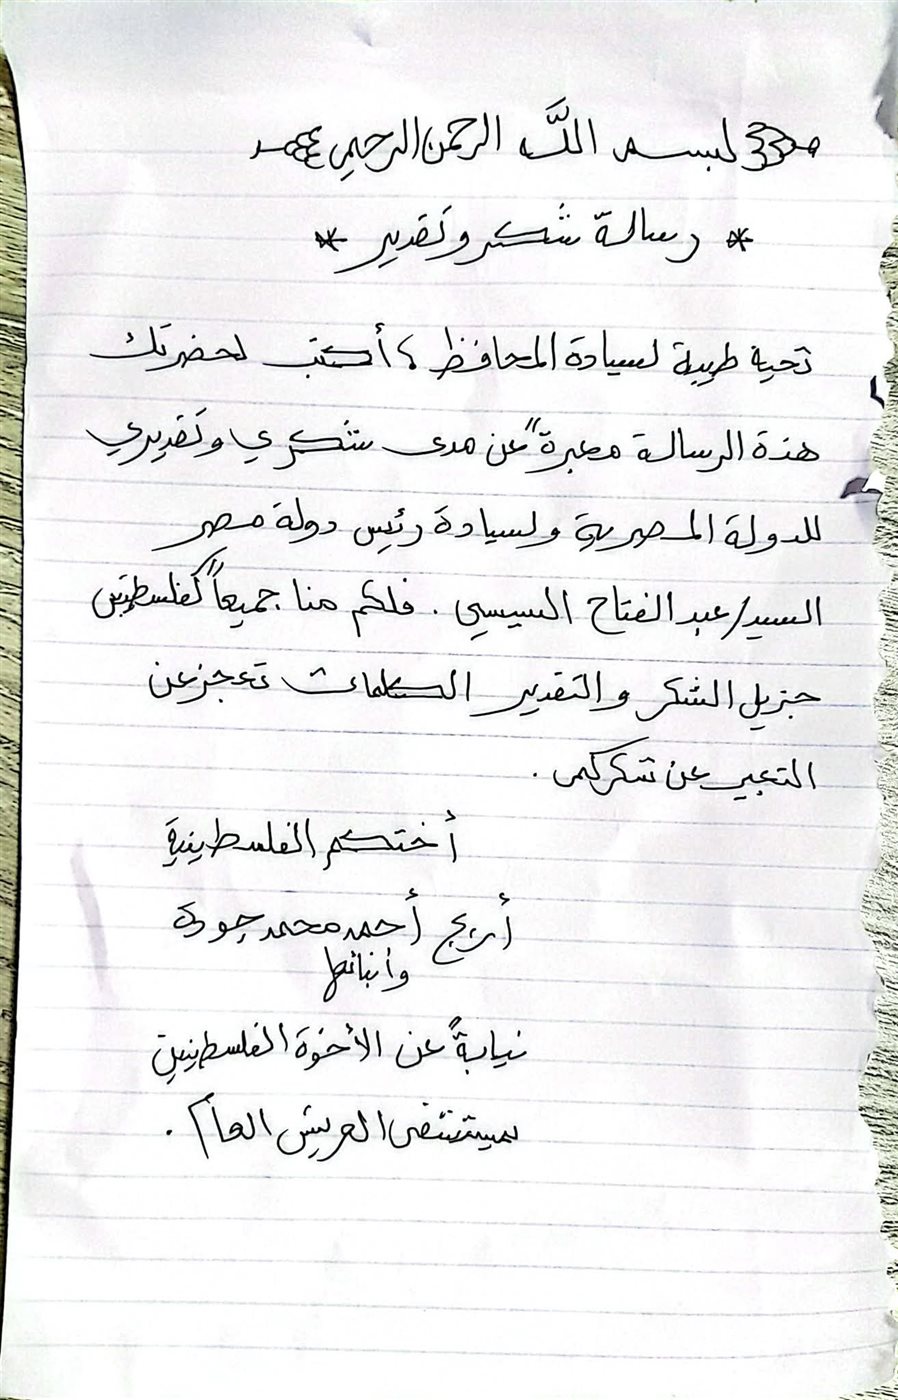 بسم الله الرحمن الرحيم
* رسالة شكر وتقدير *
تحية طيبة لسيادة المحافظ، أكتب لحضرتك
هذة الرسالة معبرةً عن مدى شكري وتقديري
للدولة المصرية ولسيادة رئيس دولة مصر
السيد/عبد الفتاح السيسي . فلكم منا جميعاً كفلسطينين
جزيل الشكر والتقدير الكلمات تعجز عن
التعبير عن شكركم .
أختكم الفلسطينية
أريج أحمد محمد جودة
وأبنائها
نيابةً عن الأخوة الفلسطينين
بمستشفى العريش العام .